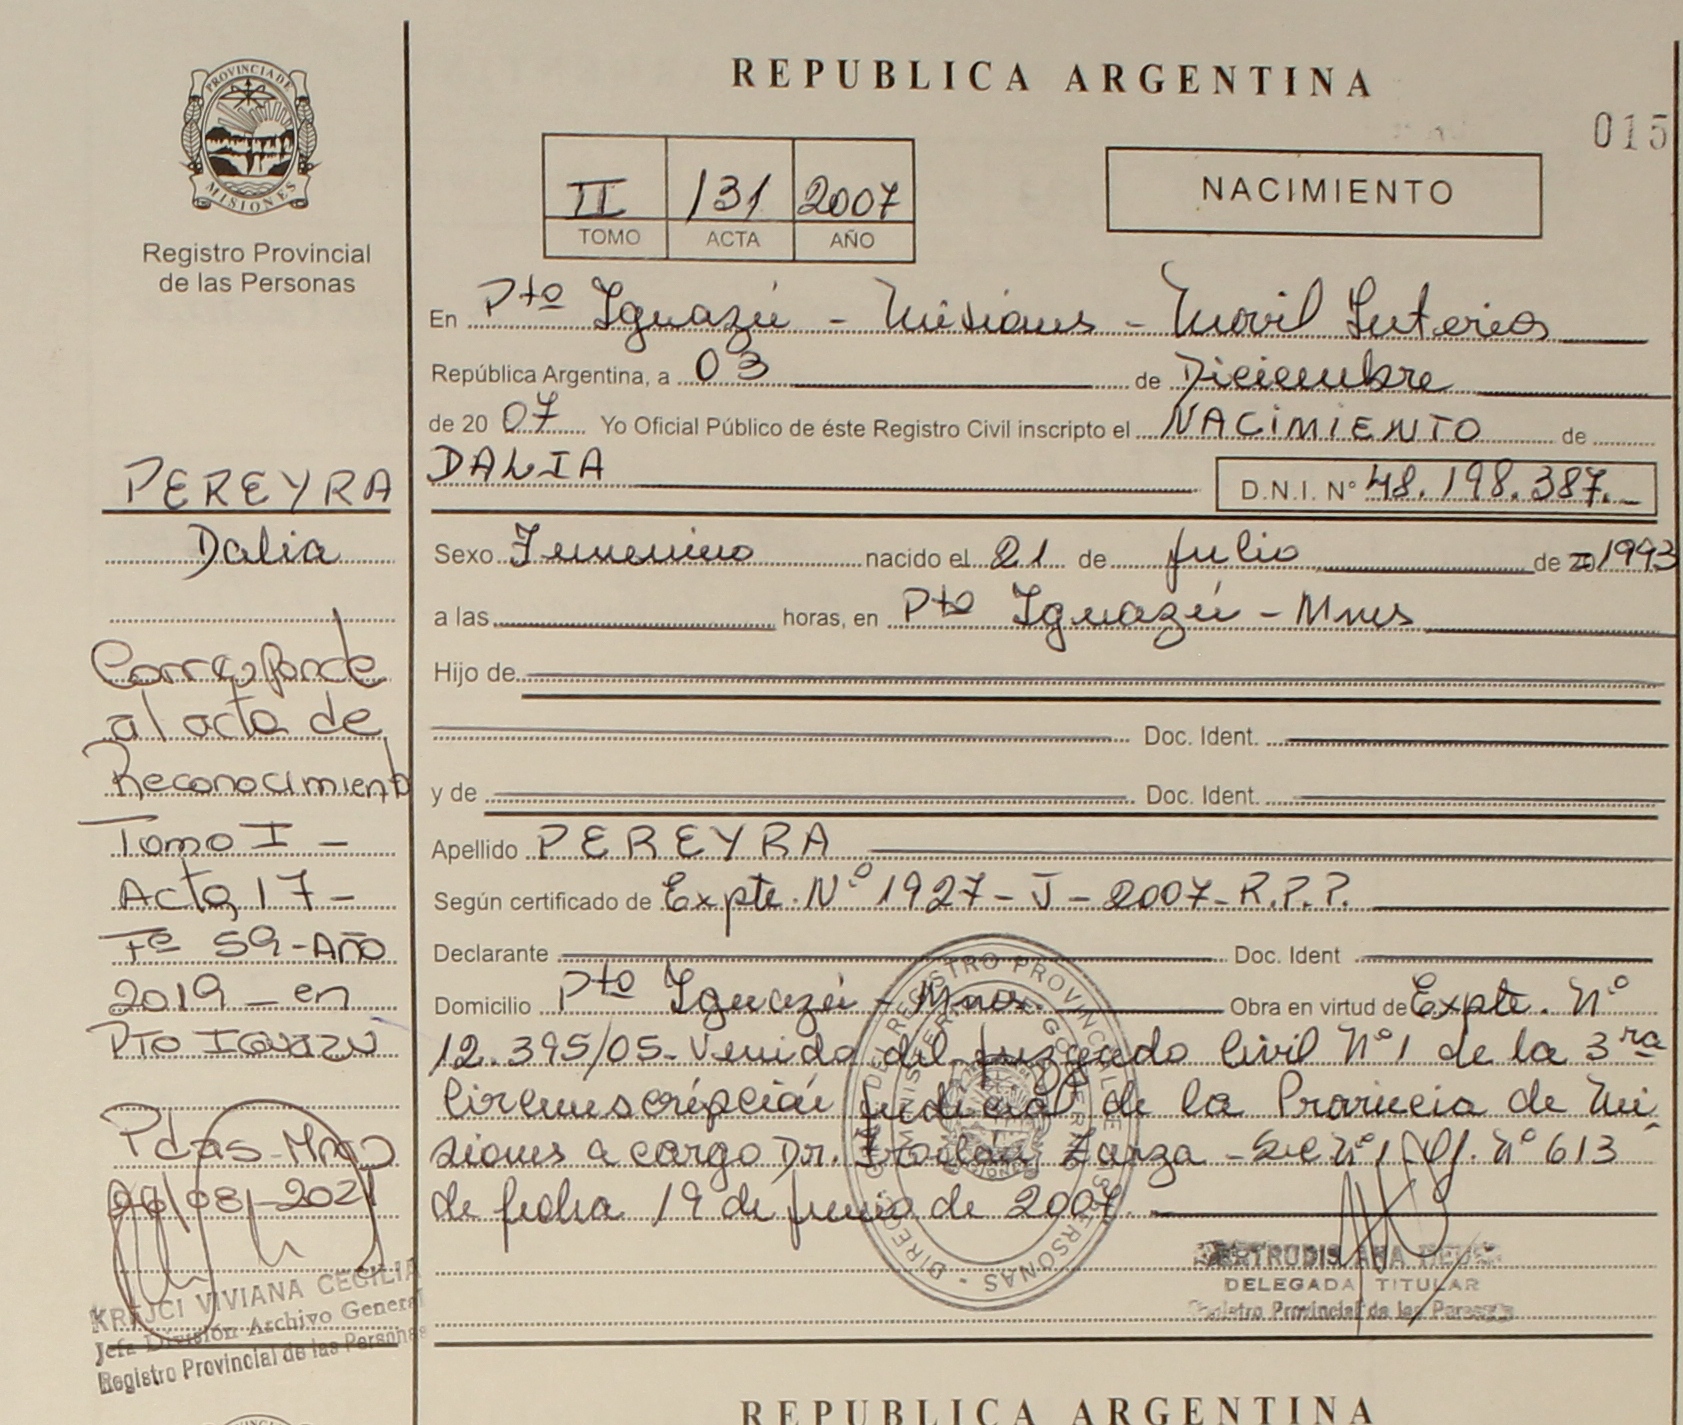 PROVINCIA DE
MISIONES
Registro Provincial
de las Personas
REPUBLICA ARGENTINA
015
II 131 2007
TOMO ACTA AÑO
NACIMIENTO
En Pto Iguazú - Misiones - Movil Interior
República Argentina, a 03 de Diciembre
de 2007 Yo Oficial Público de éste Registro Civil inscripto el NACIMIENTO de
DALIA D.N.I. Nº 48.198.387.
Sexo Femenino nacido el 21 de julio de 20 1993
a las horas, en Pto Iguazú - Mnes
Hijo de
Doc. Ident.
y de Doc. Ident.
Apellido PEREYRA
Según certificado de Expte. Nº 1927 - J - 2007 - R.P.P.
Declarante Doc. Ident
Domicilio Pto Iguazú - Mnes. Obra en virtud de Expte. Nº
12.395/05 - Venido del Juzgado Civil Nº1 de la 3ra
Circunscripción judicial de la Provincia de Mi
siones a cargo Dr. Zarza - Sec nº1 Of. nº 613
de fecha 19 de junio de 2007.
PEREYRA
Dalia
Corresponde
al acta de
Reconocimiento
Tomo I -
Acta 17 -
Fº 59 - Año
2019 - en
Pto Iguazú
Pdas - Mnes
/08/-2021
KREJCI VIVIANA CECILIA
Jefa División Archivo General
Registro Provincial de las Personas
ANA
DELEGADA TITULAR
Registro Provincial de las Personas
REPUBLICA ARGENTINA